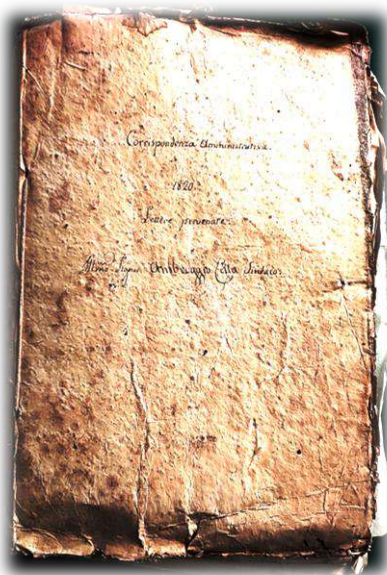 Corrispondenza Amministrativa.
1820.
Lettere pervenute.
Illmo Signor Ambroggio Cella Sindaco.